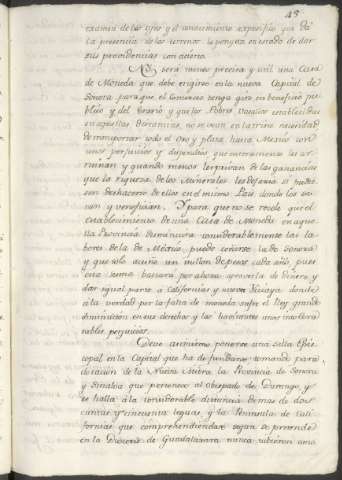 48
examen de los ojos y el conocimiento expresivo que dá
la presencia de los terrenos, le ponga en estado de dar
sus providencias con acierto.
No será menos precisa y util una Casa
de Moneda que debe erigirse en la nueva Capital de
Sonora para que el Comercio tenga giro en beneficio pu-
blico y del Erario y que los Pobres Vasallos establecidos
en aquellas distancias, no se vean en la triste necesidad
de transportar todo el oro y plata hasta Mexico con
unos perjuicios y dispendios que enteramente los ar-
ruinan y quando menos les privan de las ganancias
que la riqueza de los Minerales les dejaria si pudie-
sen deshacerse de ellos en el mismo Pais donde los sa-
can y benefician. Y para que no se recele que el
establecimiento de una Casa de Moneda en aque-
lla Provincia disminuira considerablemente las la-
bores de la de Mexico, puede ceñirse la de Sonora
y que solo acuñe un millon de pesos cada año, pues
esta suma bastará por ahora a proveerla de dinero, y
dar igual parte a Californias y nueva Vizcaya donde
á la verdad por la falta de moneda sufre el Rey grande
disminucion en sus derechos y los havitantes unos intole-
rables perjuicios.
Deve asi mismo ponerse una silla Epis-
copal en la Capital que ha de fundarse tomando para
dotacion de la Nueva Mitra, la Provincia de Sonora
y Sinaloa que pertenece al obispado de Durango, y
se halla á la considerable distancia de mas de dos-
cientas y cincuenta leguas, y la Peninsula de Cali-
fornias que comprehendiendose segun se pretende
en la Diocesis de Guadalaxara nunca tubieron una